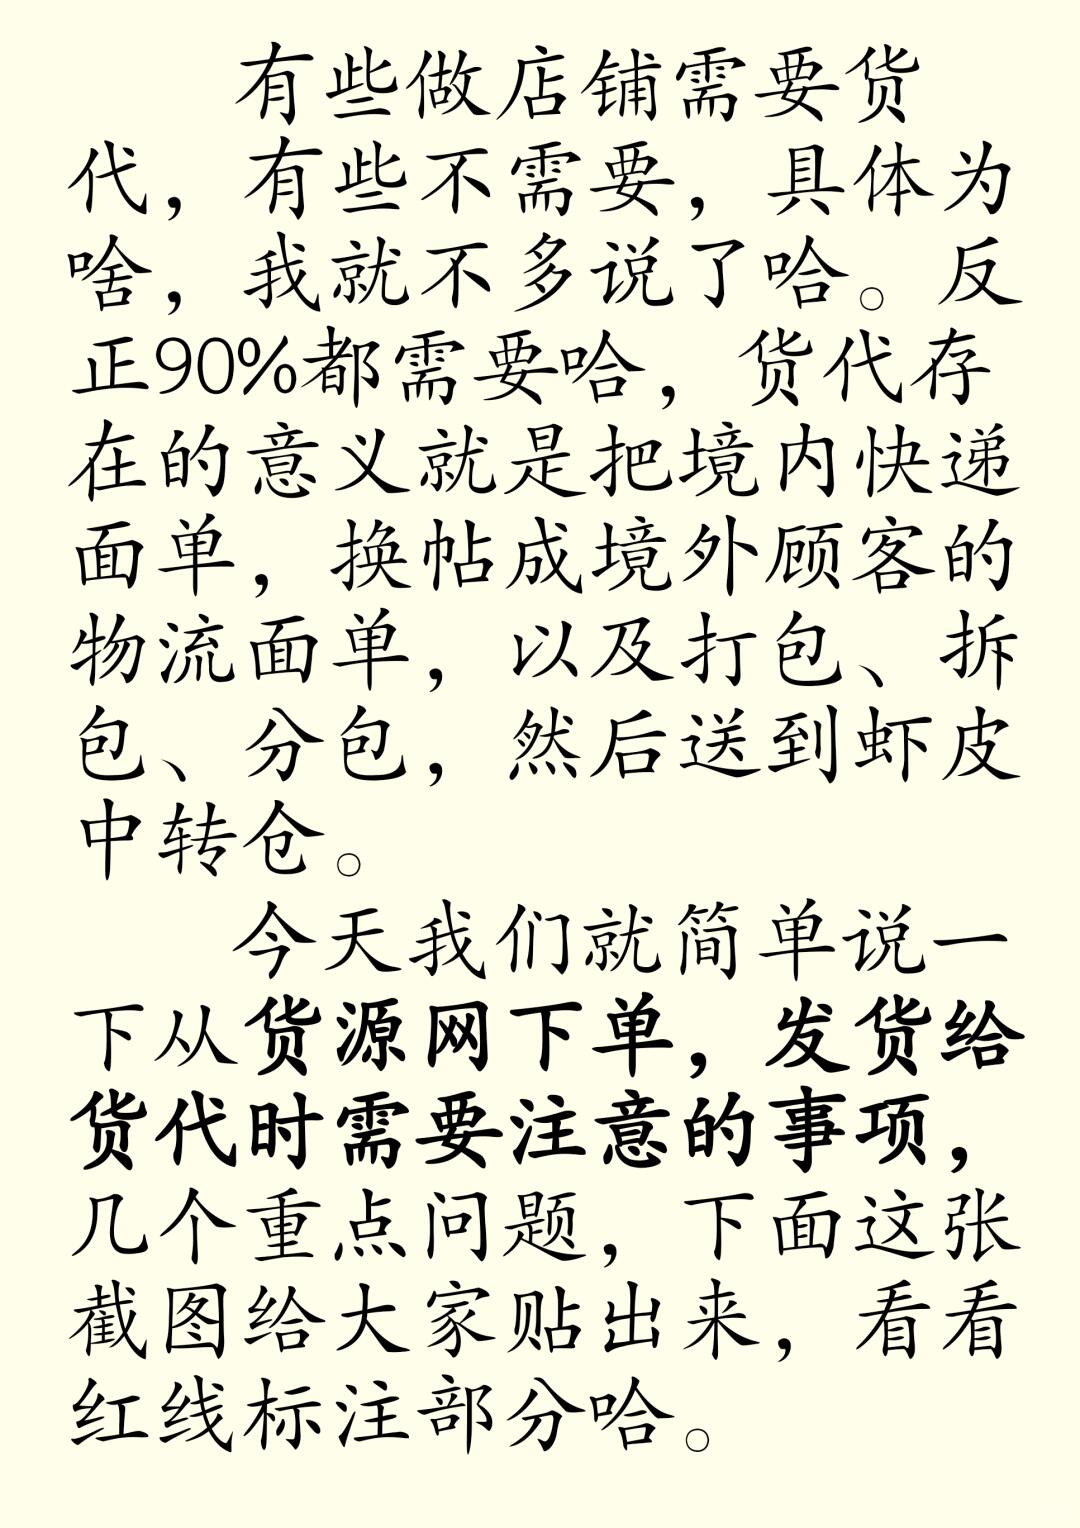 有些做店铺需要货
代，有些不需要，具体为
啥，我就不多说了哈。反
正90%都需要哈，货代存
在的意义就是把境内快递
面单，换帖成境外顾客的
物流面单，以及打包、拆
包、分包，然后送到虾皮
中转仓。
今天我们就简单说一
下从货源网下单，发货给
货代时需要注意的事项，
几个重点问题，下面这张
截图给大家贴出来，看看
红线标注部分哈。